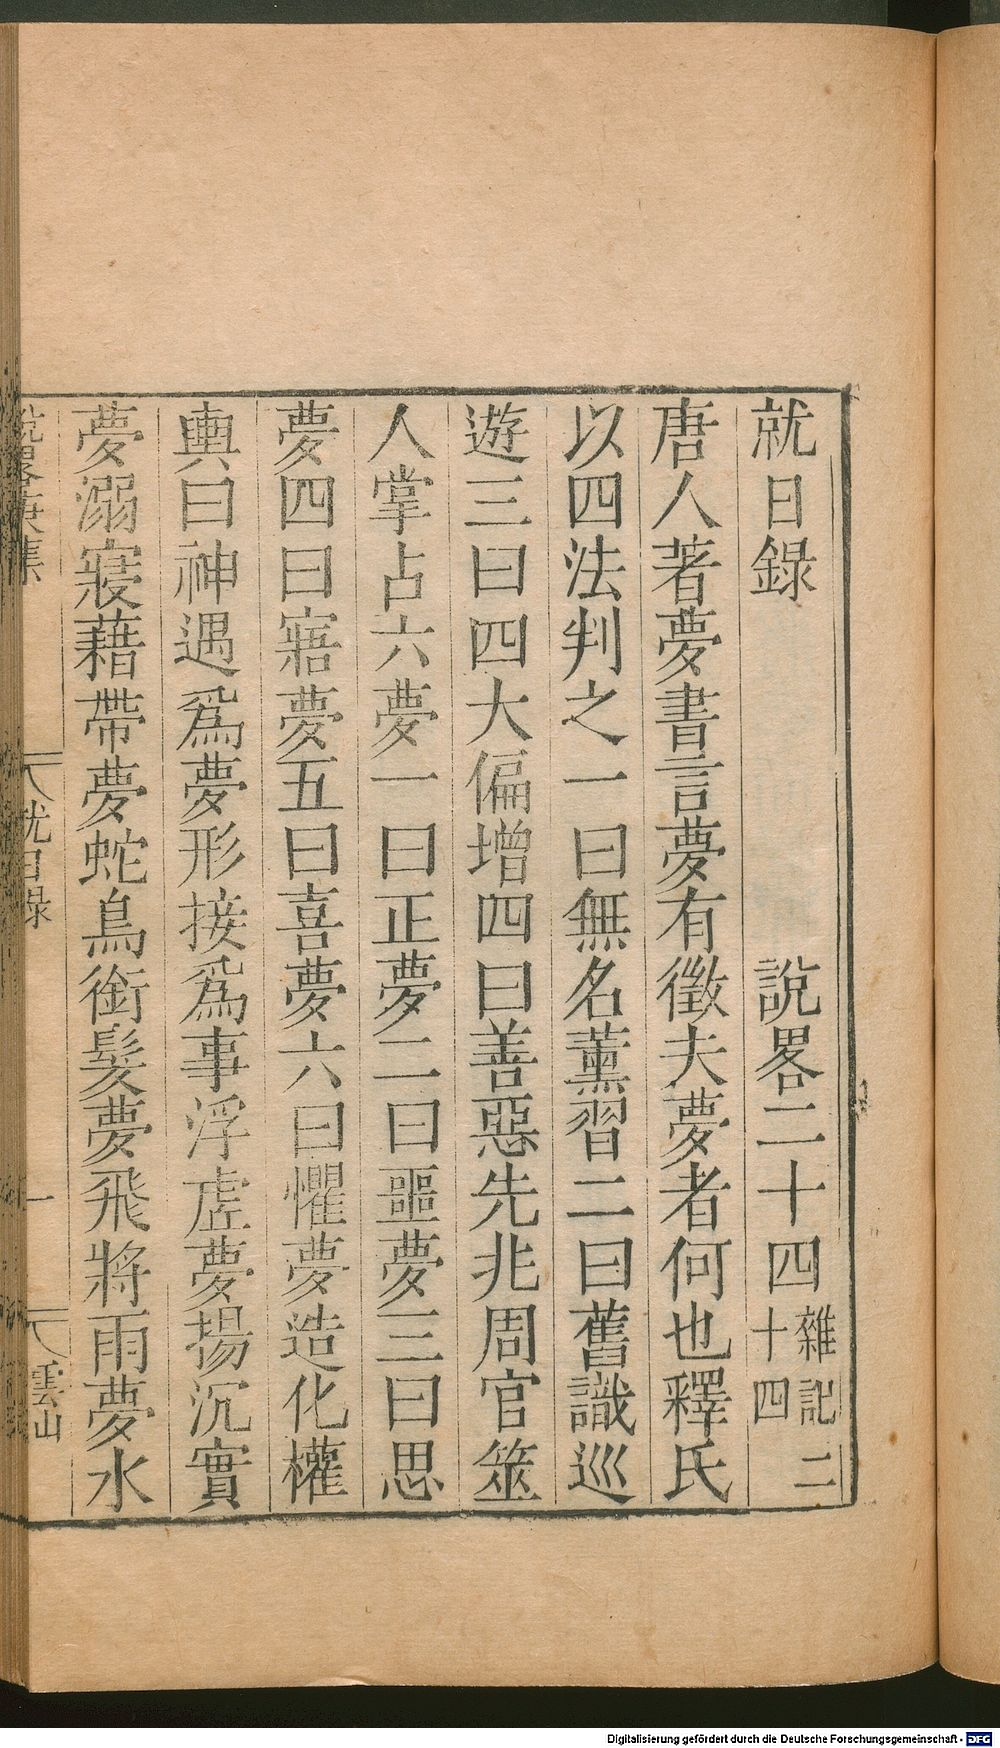 就日錄　說畧二十四　雜記二十四
唐人著夢書言夢有徵夫夢者何也釋氏
以四法判之一曰無名薰習二曰舊識巡
遊三曰四大偏增四曰善惡先兆周官筮
人掌占六夢一曰正夢二曰噩夢三曰思
夢四曰寤夢五曰喜夢六曰懼夢造化權
輿曰神遇爲夢形接爲事浮虛夢揚沉實
夢溺寢藉帶夢蛇鳥銜髮夢飛將雨夢水
說畧 集　就日錄　一　雲山
Digitalisierung gefördert durch die Deutsche Forschungsgemeinschaft - DFG